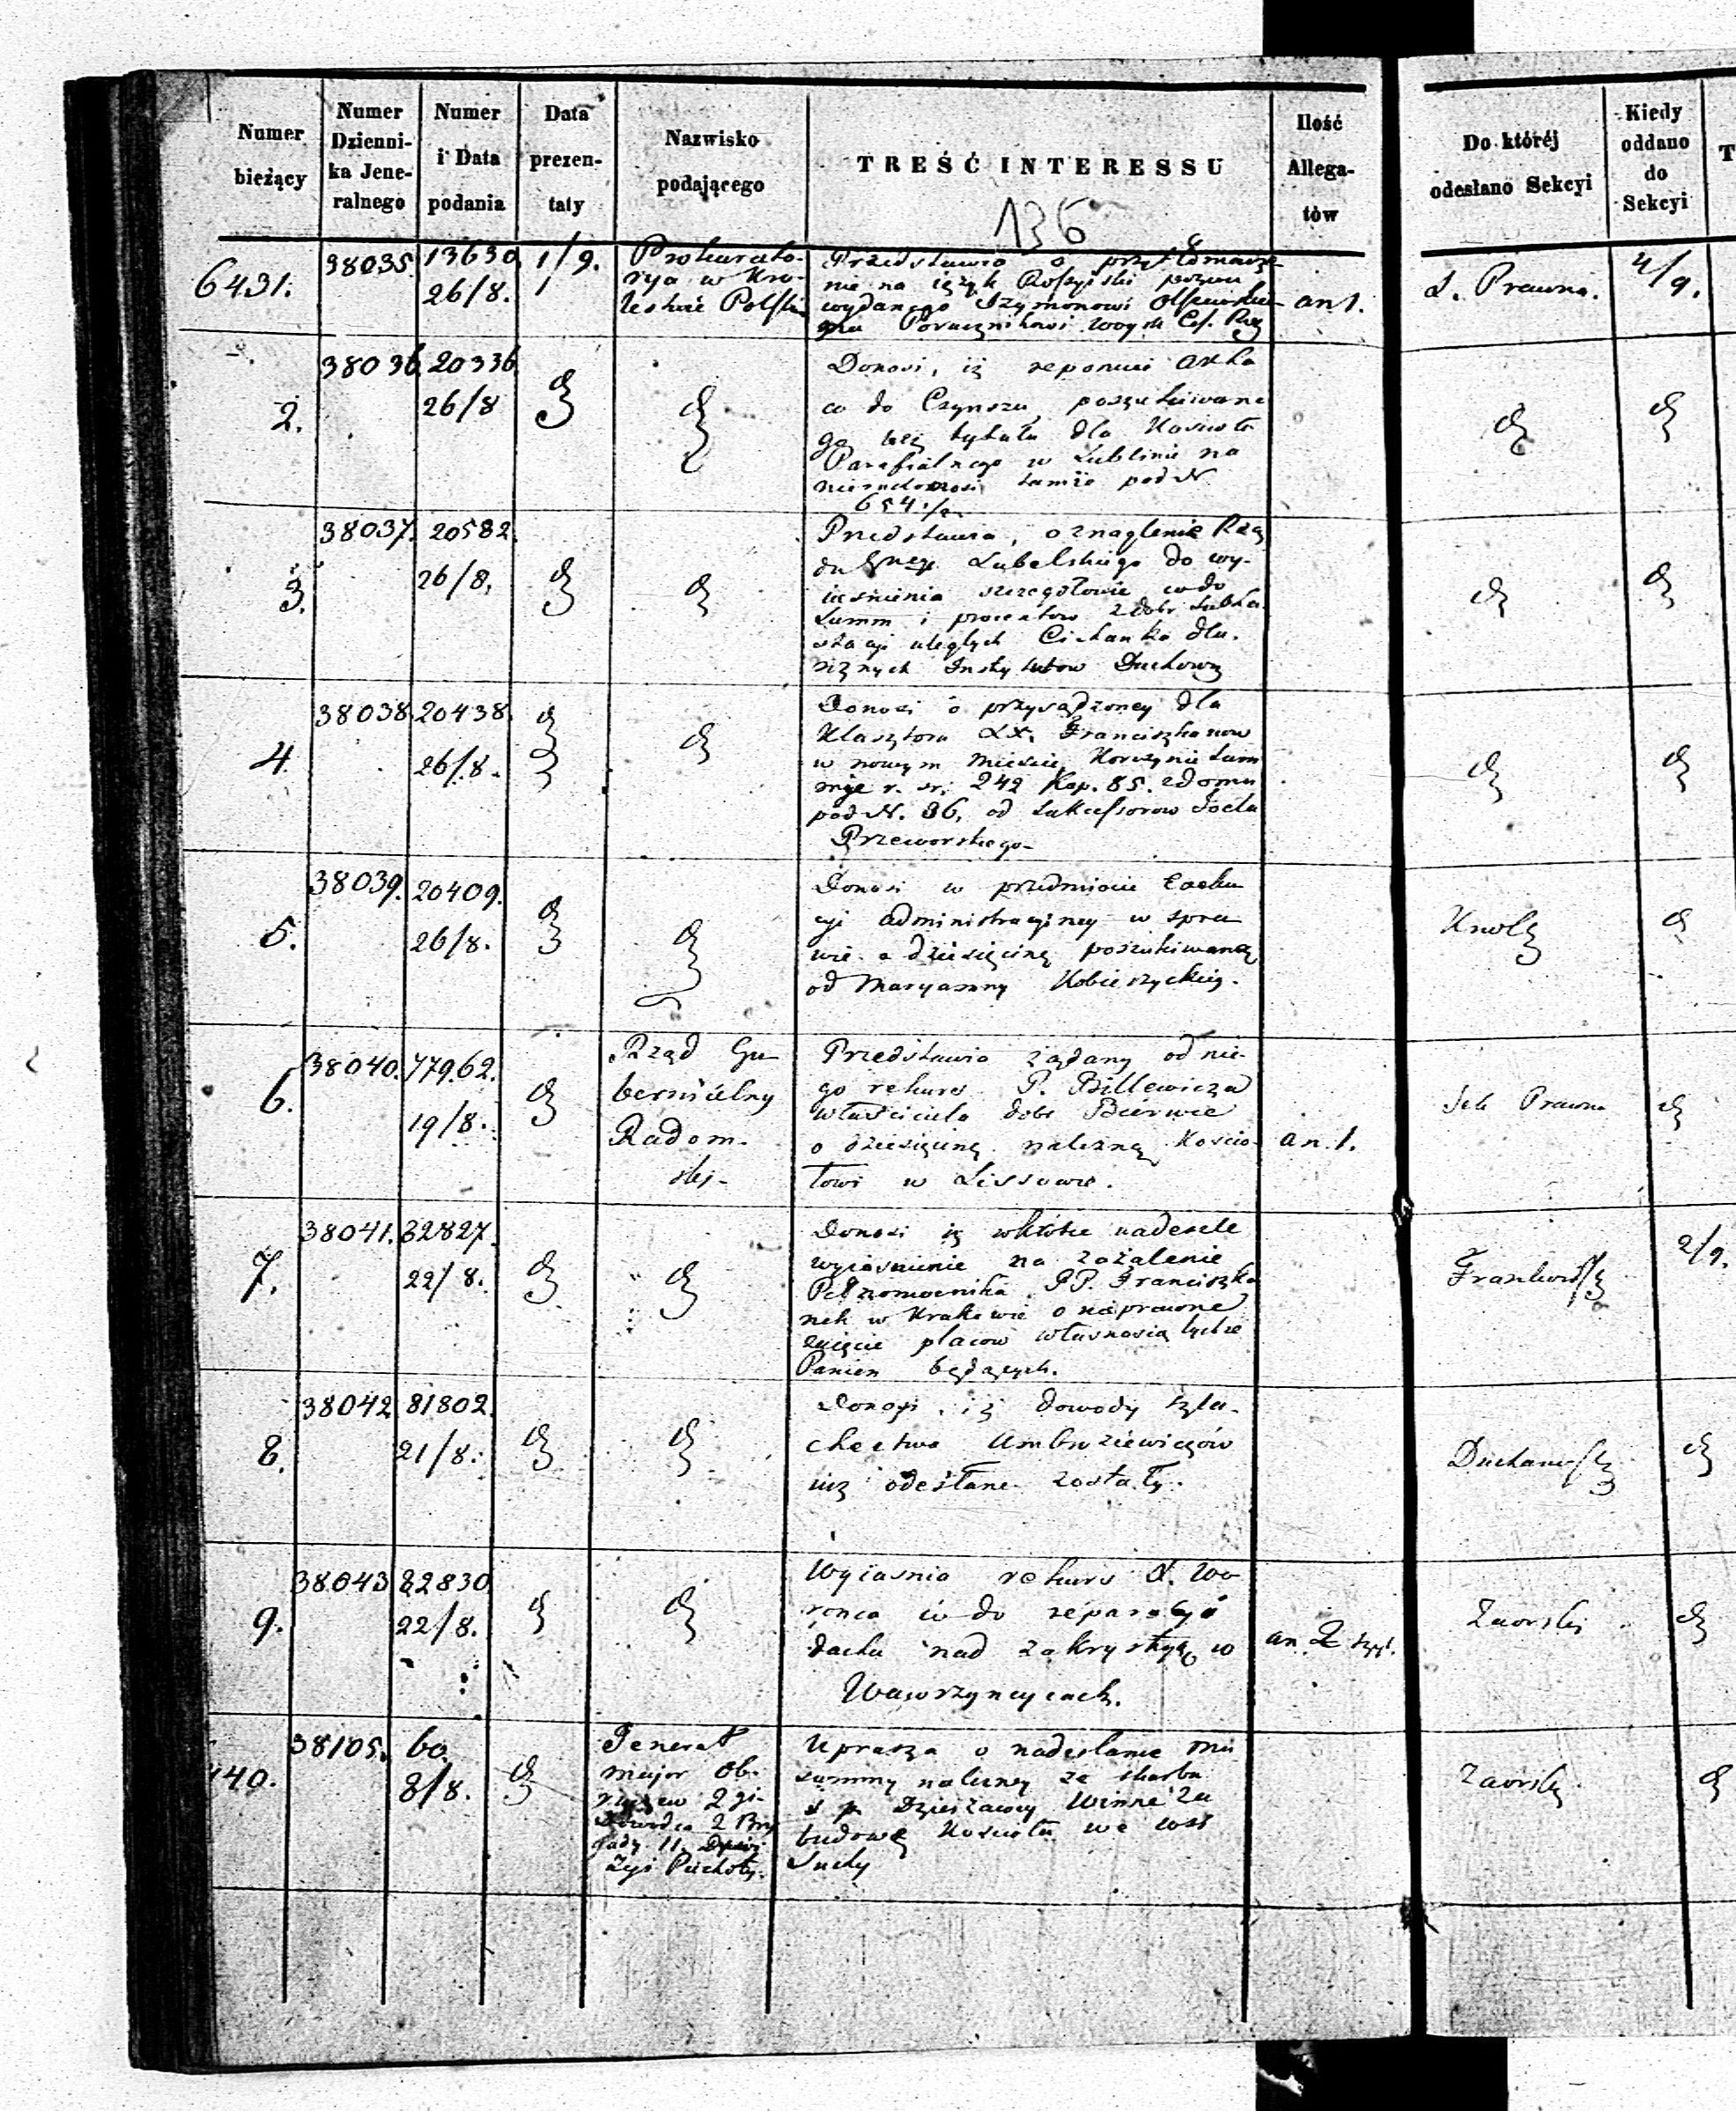 Numer bieżący
Numer Dzienni-
ka Jene-
ralnego
Numer i Data podania
Data prezen-
taty
Nazwisko podającego
TREŚĆ INTERESSU
Ilość Allega-
tów
Do któréj odesłano Sekcyi
Kiedy oddano do Sekcyi
T
136
6431.
38035.
13630
26/8.
1/9.
Prokurato-
rya w Kró-
lestwie Polski
Przedstawia o przetłomacze
nie na ięzyk Rossyiski pozwu
wydanego Szymonowi
Porucznikowi Woysk Ces. Ros
an 1.
S. Prawna.
4/9.
2.
38036
20336
26/8
Donosi, iż reponuie akta
co do Czynszu poszukiwane
go bez tytułu dla Kościoła
Parafialnego w Lublinie na
nieruchomości tamże pod N
654 1/2.
3.
38037.
20582.
26/8.
Przedstawia, o znaglenie Rzą
du Gu Lubelskiego do wy-
iaśnienia szczegółowie co do
Summ i procentow z dobr Lubar
uległych dla
rożnych Instytutow Duchown
4.
38038.
20438.
26/8.
Donosi o przysądzoney dla
Klasztora XX. Franciszkanow
w nowym Mieście Korczynie Sum
mie r. sr. 242 Kop. 85. z domu
pod N. 36, od Sukcessorow Joela
Przeworskiego-
5.
38039.
20409.
26/8.
Donosi w przedmiocie Exeku
cyi administracyiney w spra
wie o dziesięcinę poszukiwaną
od Maryanny Kobierzyckiey.
Knoll
6.
38040.
77962.
19/8.
Rząd Gu-
bernialny
Radom-
ski-
Przedstawia żądany od nie-
go rekurs P. Billewicza
właściciela dobr Bierwce
o dziesięcinę należną Kościo-
łowi w Lissowie.
an. 1.
Sek Prawna
7.
38041.
82827.
22/8.
Donosi iż wkrótce nadesele
wyiaśnienie na zażalenie
Pełnomocnika PP. Franciszka
nek w Krakowie o nieprawne
zaięcie placow własnością tychże
Panien będących.
2/9.
8.
38042
81802.
21/8.
Donosi, iż dowody szla-
chectwa Ambroziewiczów
iuż odesłane zostały.
9.
38043
82830
22/8.
Wyiaśnia rekurs X. Wo
ronca co do reparacyi
dachu nad zakrystyą w
Wawrzynczycach.
an. 2 szyt.
Zaorski
440.
38105.
60.
8/8.
Generał
major Ob-
ruczew 2 gi-
Dowódca 2 Bry
gady 11. Dywi
zyi Piechoty.
Uprasza o nadesłanie mu
summy należney ze skarbu
s p. Dzierżawcy Winne za
budowę Kościoła we wsi
Suchy
Zaorski